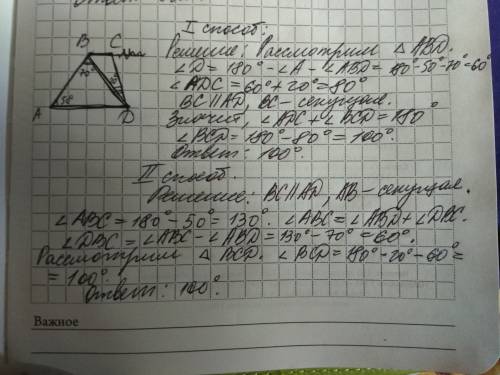 I способ:
Решение: Рассмотрим △ ABD.
∠D = 180° - ∠A - ∠ABD = 180° - 50° - 70° = 60°
∠ADC = 60° + 20° = 80°
BC || AD, BC - секущая.
Значит, ∠ADC + ∠BCD = 180°
∠BCD = 180° - 80° = 100°.
Ответ: 100°.
B C
70°
A D
II способ
Решение: BC || AD, AB - секущая.
∠ABC = 180° - 50° = 130°. ∠ABC = ∠ABD + ∠DBC.
∠DBC = ∠ABC - ∠ABD = 130° - 70° = 60°.
Рассмотрим △ BCD. ∠BCD = 180° - 20° - 60° =
= 100°.
Ответ: 100°.
Важное